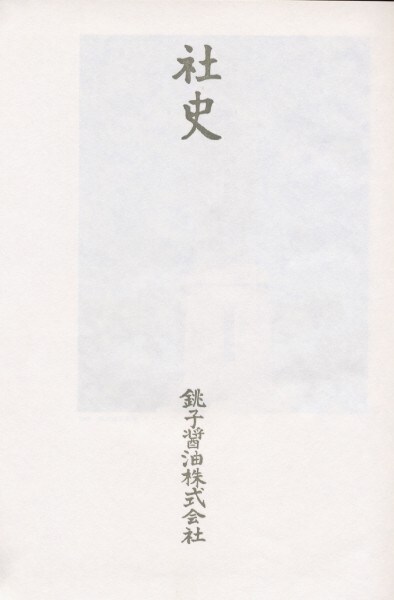 社史
銚子醤油株式会社